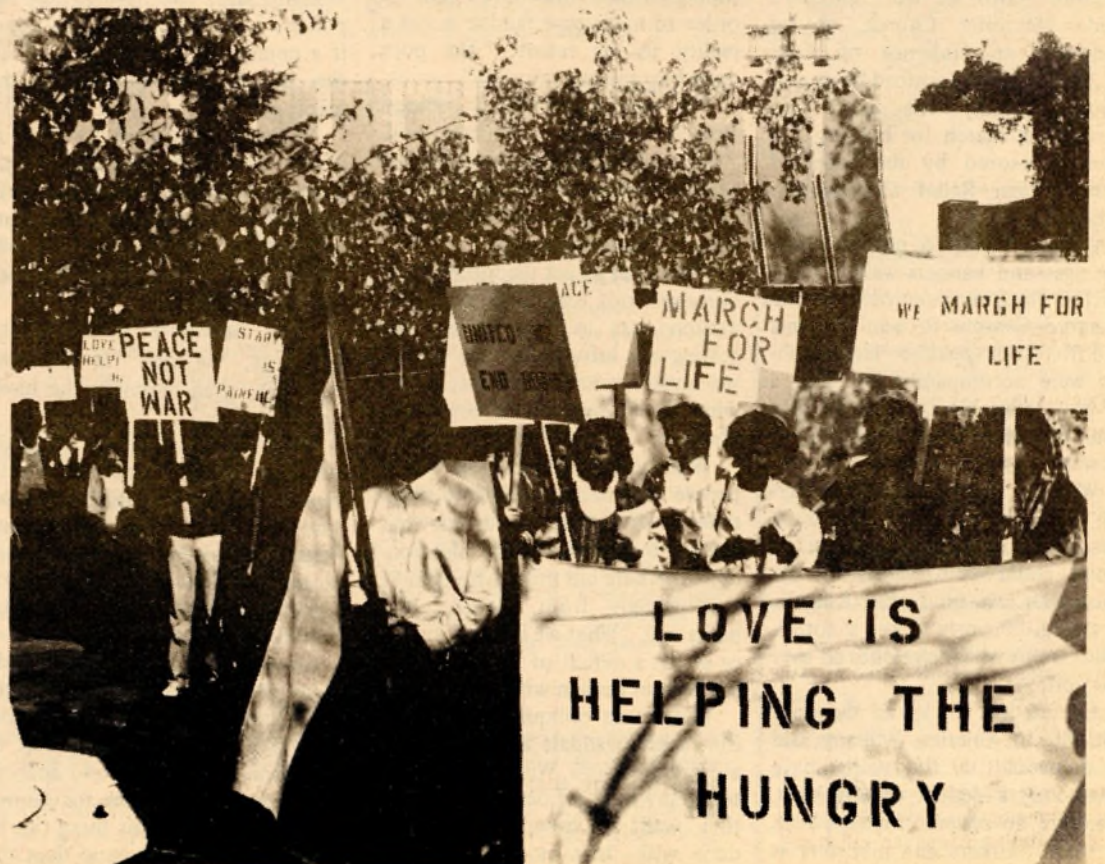 LOVE
HELPI
PEACE
NOT
WAR
STARV
IS
PAINFUL
ACE
UNITED WE
END HUNGER
MARCH
FOR
LIFE
WE MARCH FOR
LIFE
LOVE IS
HELPING THE
HUNGRY